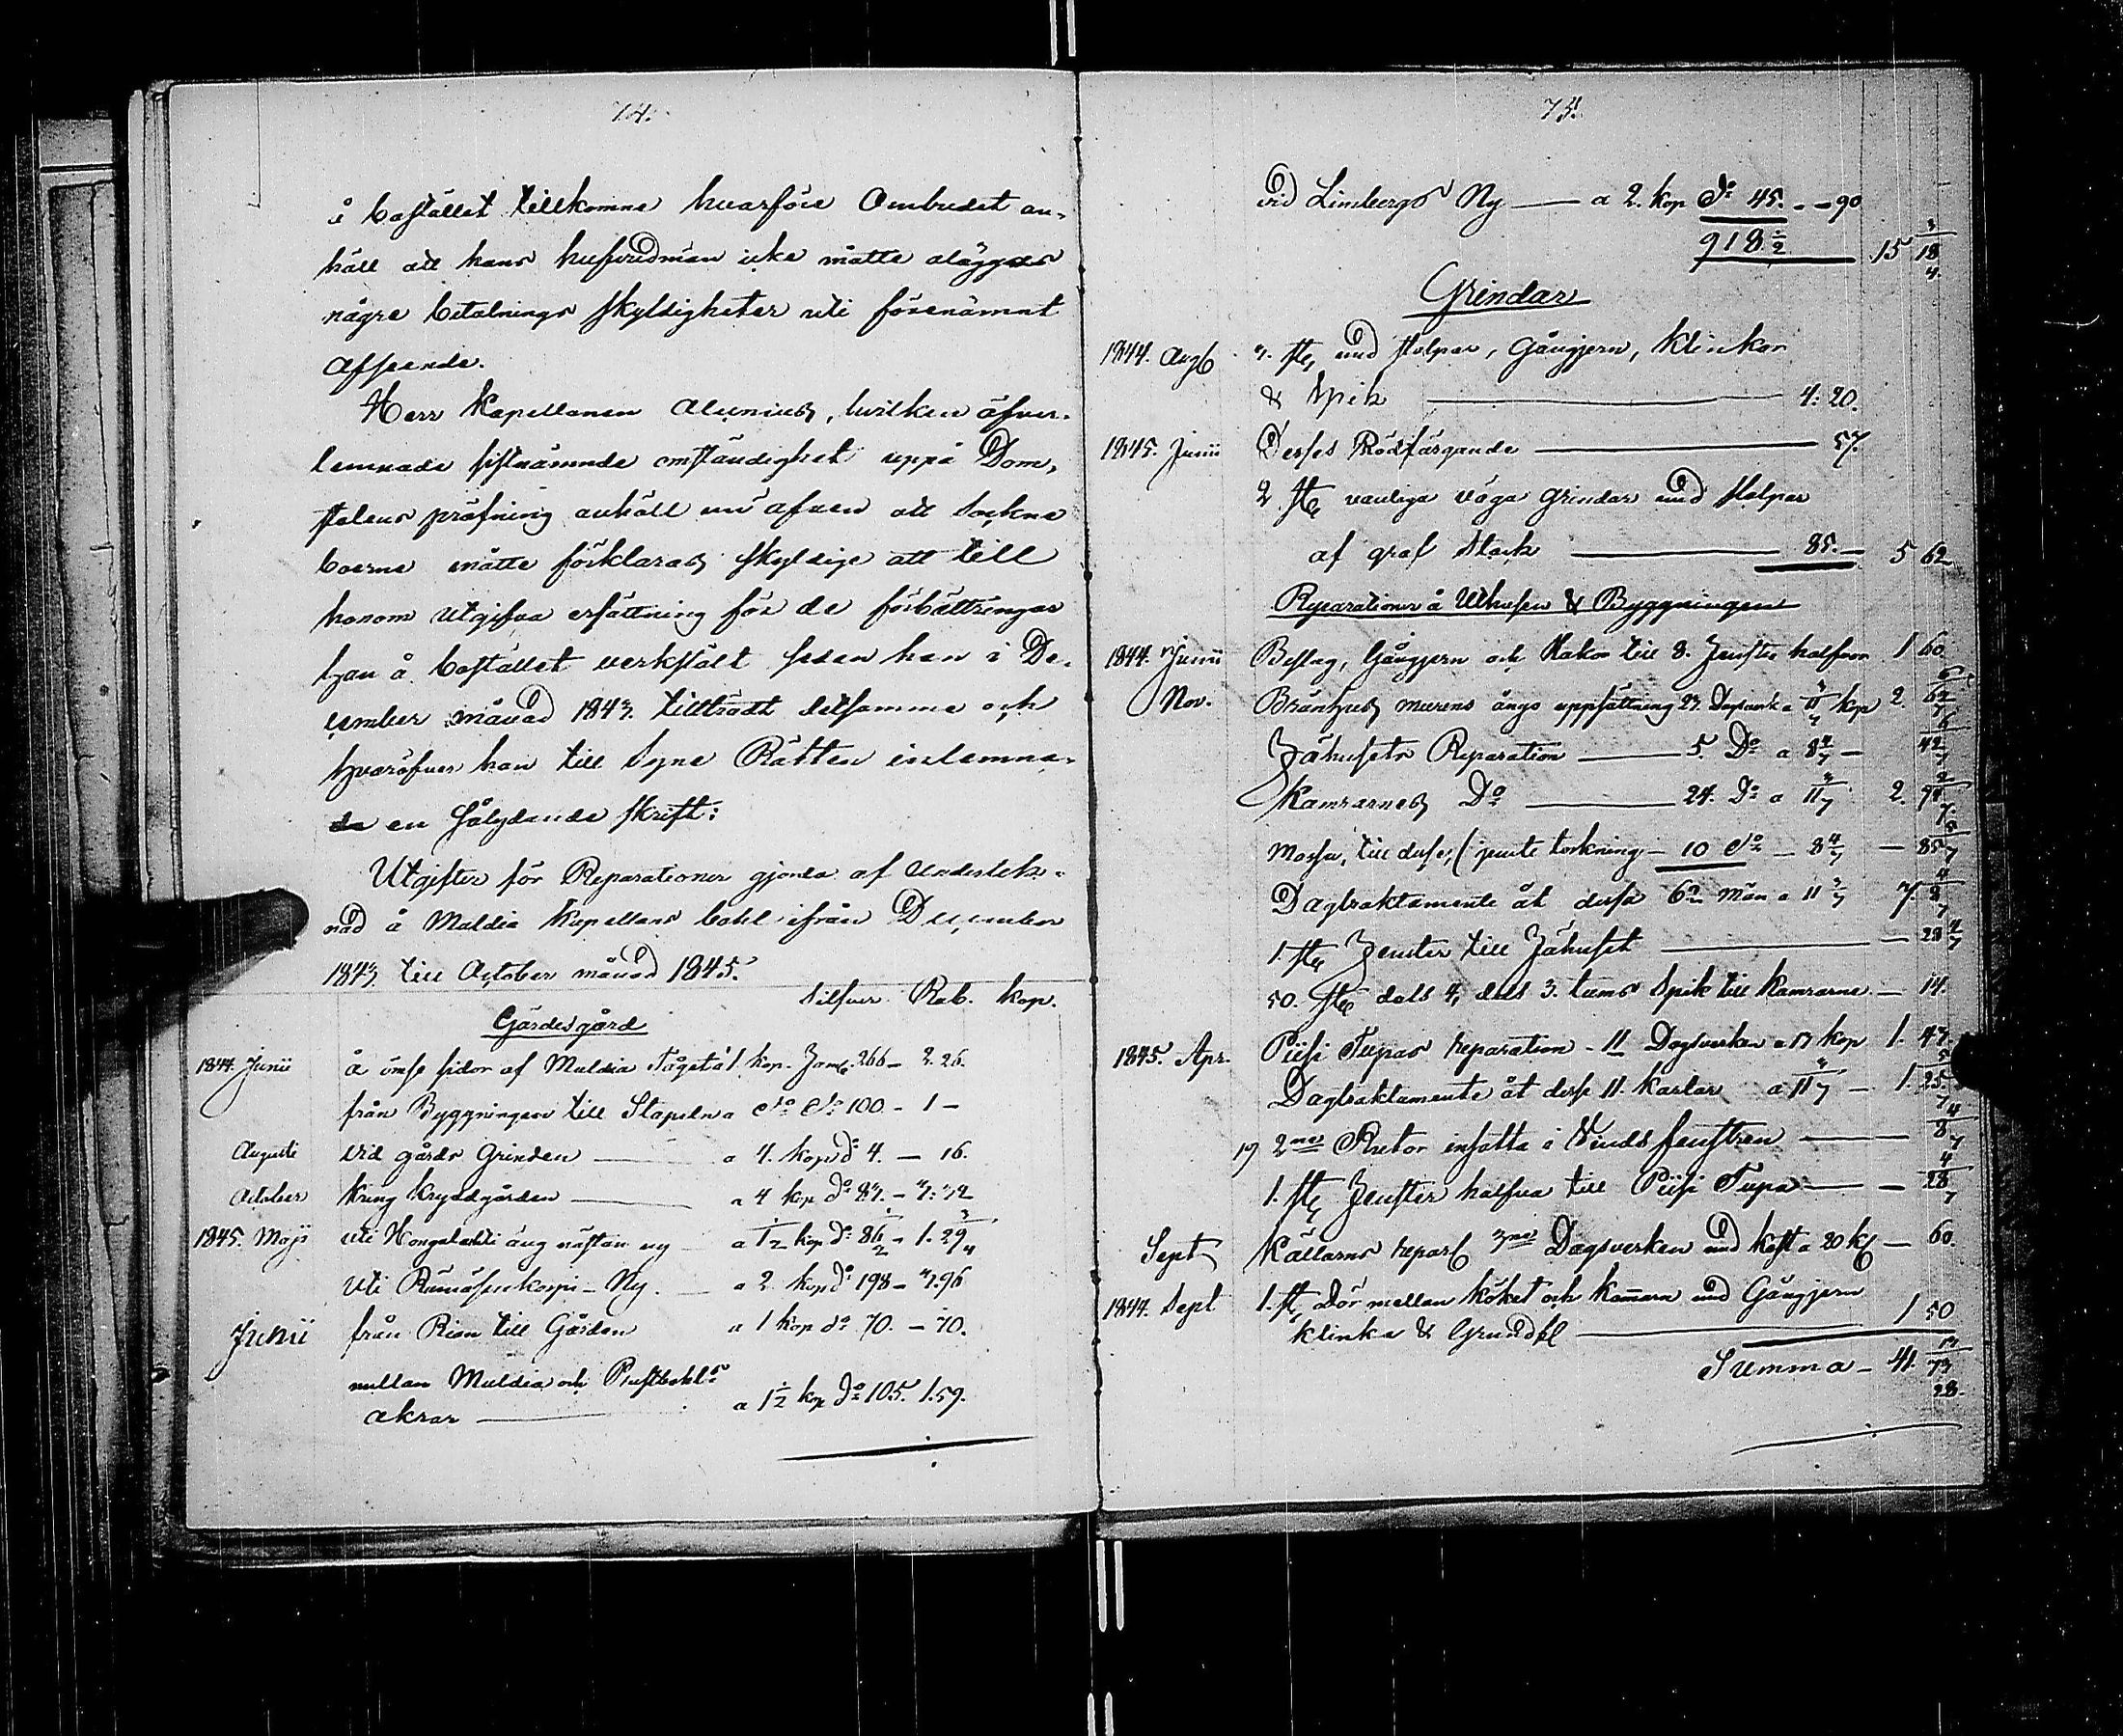 74.
å bostället tillkomne hvarföre Ombudet an-
höll att hans hufvudmän icke måtte åläggas
några betalnings skyldigheter uti förenämnt
afseende.
Herr Kapellanen Alenius, hvilken öfver-
lemnade sistnämnde omständighet uppå Dom-
stolens pröfning anhöll nu äfven att Sockne
boerne måtte förklaras skyldige att till
honom utgifva ersättning för de förbättringar
han å bostället verkstält sedan han i De-
cember månad 1843. tillträdt detsamma och
hvaröfver han till Syne Rätten inlemna-
de en sålydande skrift:
Utgifter för Reparationer gjorda af Underteck-
nad å Muldia Kapellans bohl ifrån December
1843 till October månad 1845.
Silfver Rub. Kop.
Gärdesgård
1844. Junii å ömse sidor af Muldia Tåget à 1. kop. Famn. 266 – 2. 26.
från Byggningen till Stapeln a do do 100 – 1 –
Augusti vid gårds Grinden — a 4. kop do 4. — 16.
October kring kryddgården — a 4 kop do 83. – 3:32
1845. Maji uti Hongalahti äng nästan ny — a 1½ kop do 86½ – 1. 29¾
uti — Ny. — a 2. kop do 198 – 3.96
Junii från Rian till Gården a 1 kop do 70. – 70.
mellan Muldia och Prestbohls
åkrar — a 1½ kop do 105. 1.59.
75.
vid Limbergs Ny — a 2. kop do 45. – – 90
918½ 15 18¾
Grindar
1844. Aug 3. st, med stolpar, Gångjern, Klinkor
& Spik — 4:20.
1845. Junii Desses Rödfärgande — 57.
2 st vanliga väga grindar med stolpar
af graf Stock — 85. — 5 62
Reparationer å Uthusen & Byggningen
1844. Junii Beslag, Gångjern och Hakor till 8. Fenster halfvor 1 60.
Nov. Brännhus murens ängs uppsättning 23. Dagsverk a 11 3/7 kop 2. 62 6/7
Fähusets Reparation — 5. Do a 8 4/7 — 42 6/7
Kamrarnes Do — 24. Do a 11 3/7 2.
Mossa, till desse, (jemte torkning – 10 do – 8 4/7 — 85 5/7
Dagtraktamente åt dessa män a 11 3/7 7.
1. st Fenster till Fähuset — — 28 4/7
50. st dels 4, dels 3. tums Spik till Kamrarne — 14.
1845. Apr. Piisi Tupas reparation – 11 Dagsverken a 17 kop 1. 47.
Dagtraktamente åt desse 11. karlar a 11 3/7 — 1. 25 5/7
19 2ne Rutor insatta i Vinds fenstren — 8 4/7
1. st Fenster halfva till Piisi Tupa — — 28 4/7
Sept Källarns repar 3ne Dagsverken med kost a 20 k — 60.
1844. Sept 1. st Dör mellan köket och kammarn med Gångjern
klinka & Grundf — 1 50
Summa – 41. 73 17/28.